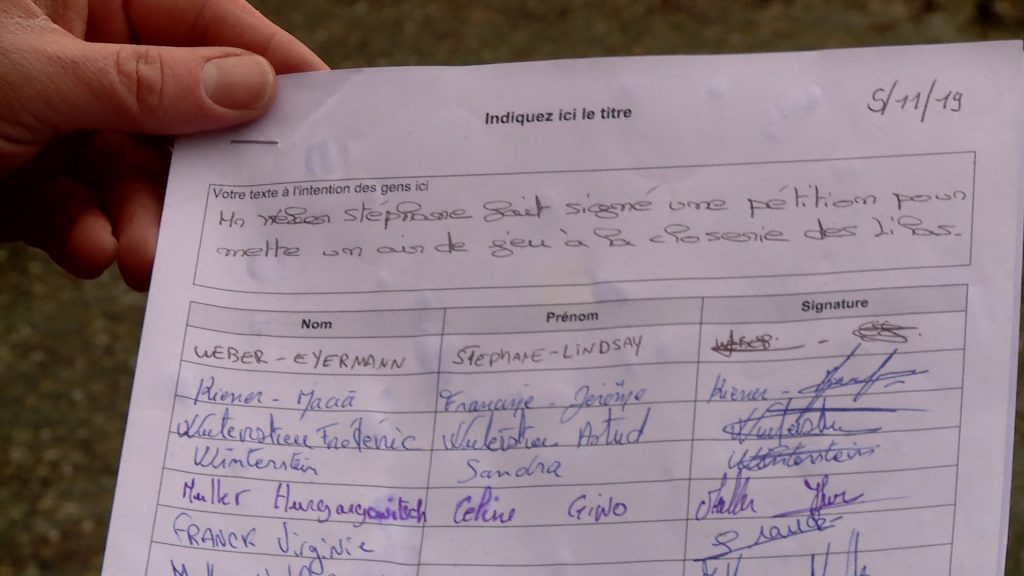 5/11/19
Indiquez ici le titre
Votre texte à l'intention des gens ici
Mr Weber Stéphane fait signé une pétition pour
mette un air de jeu à la closerie des Lilas.
Nom Prénom Signature
WEBER - EYERMANN STEPHANE-LINDSAY
Kiener - Francine - Jérôme Kiener -
Frédéric
Winterstein Sandra Winterstein
Muller Céline Gino
FRANCK Virginie